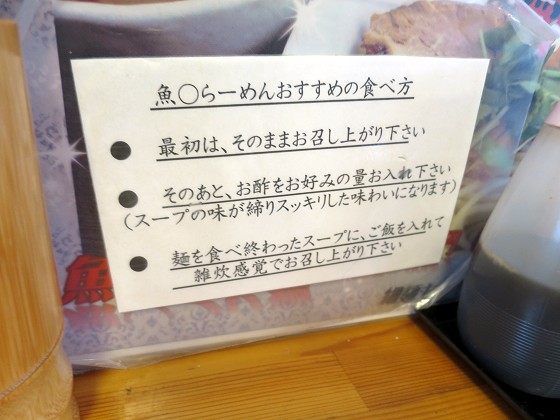 魚〇らーめんおすすめの食べ方
● 最初は、そのままお召し上がり下さい
● そのあと、お酢をお好みの量お入れ下さい
(スープの味が締りスッキリした味わいになります)
● 麺を食べ終わったスープに、ご飯を入れて
雑炊感覚でお召し上がり下さい
魚